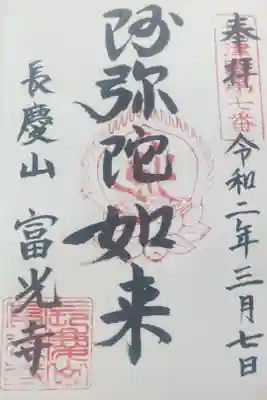 奉拝
令和二年三月七日
阿弥陀如来
長慶山 富光寺